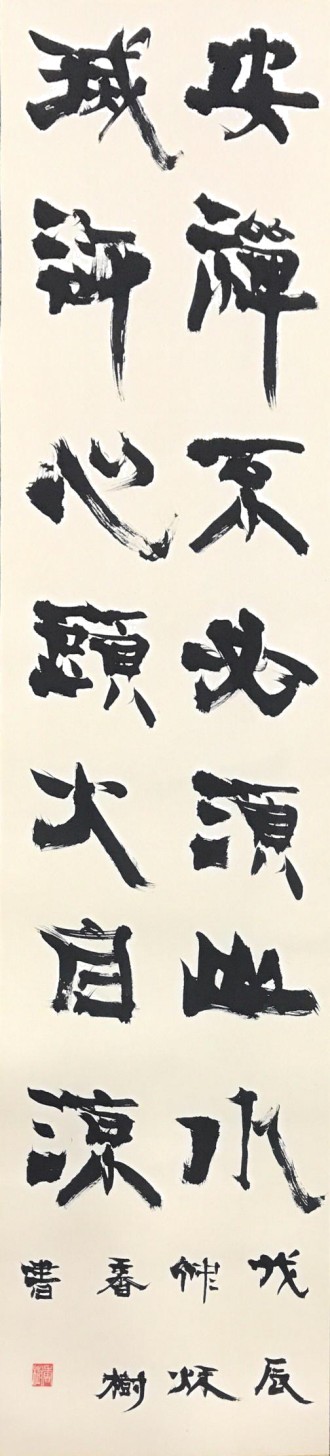 安禪不必須山水
滅得心頭火自涼
戊辰
仲秌
香樹
書